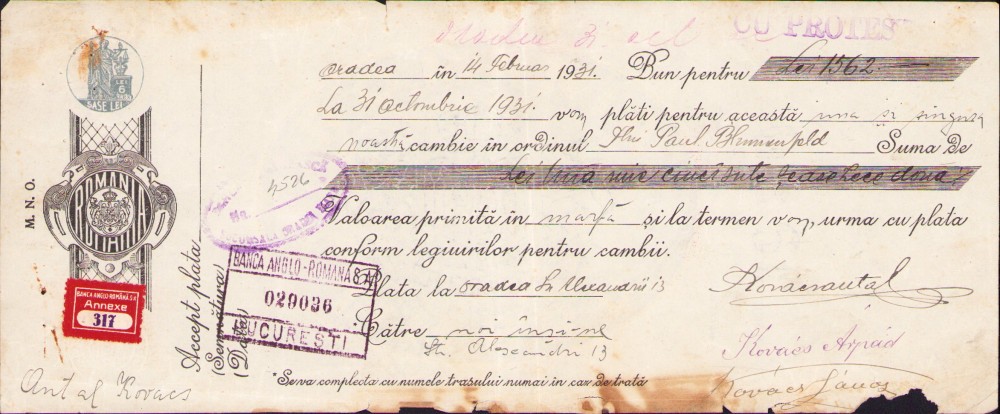 Oradea 31 oct
CU PROTEST
Oradea în 14 Februar 1931. Bun pentru Lei 1562
La 31 Octombrie 1931. vom plăti pentru această una și singura
noastră cambie în ordinul Paul Blumenfeld Suma de
Lei una mie cinci sute șeasezece două
Valoarea primită în marfă și la termen vom urma cu plata
conform legiuirilor pentru cambii.
Plata la Oradea Str Alexandrii 13
Către noi înșine
Str. Alecsandri 13
*Se va complecta cu numele trasului numai în caz de trată
Kovács Antal
Kovács Árpád
Kovács János
ȘASE LEI
M. N. O.
ROMANIA
BANCA ANGLO-ROMANĂ S.A.
Annexe
317
Antal Kovacs
Accept plata
(Semnătura)
(Data)
No. 4526
SUCURSALA ORADEA
BANCA ANGLO-ROMANĂ S.A.
029036
BUCUREȘTI